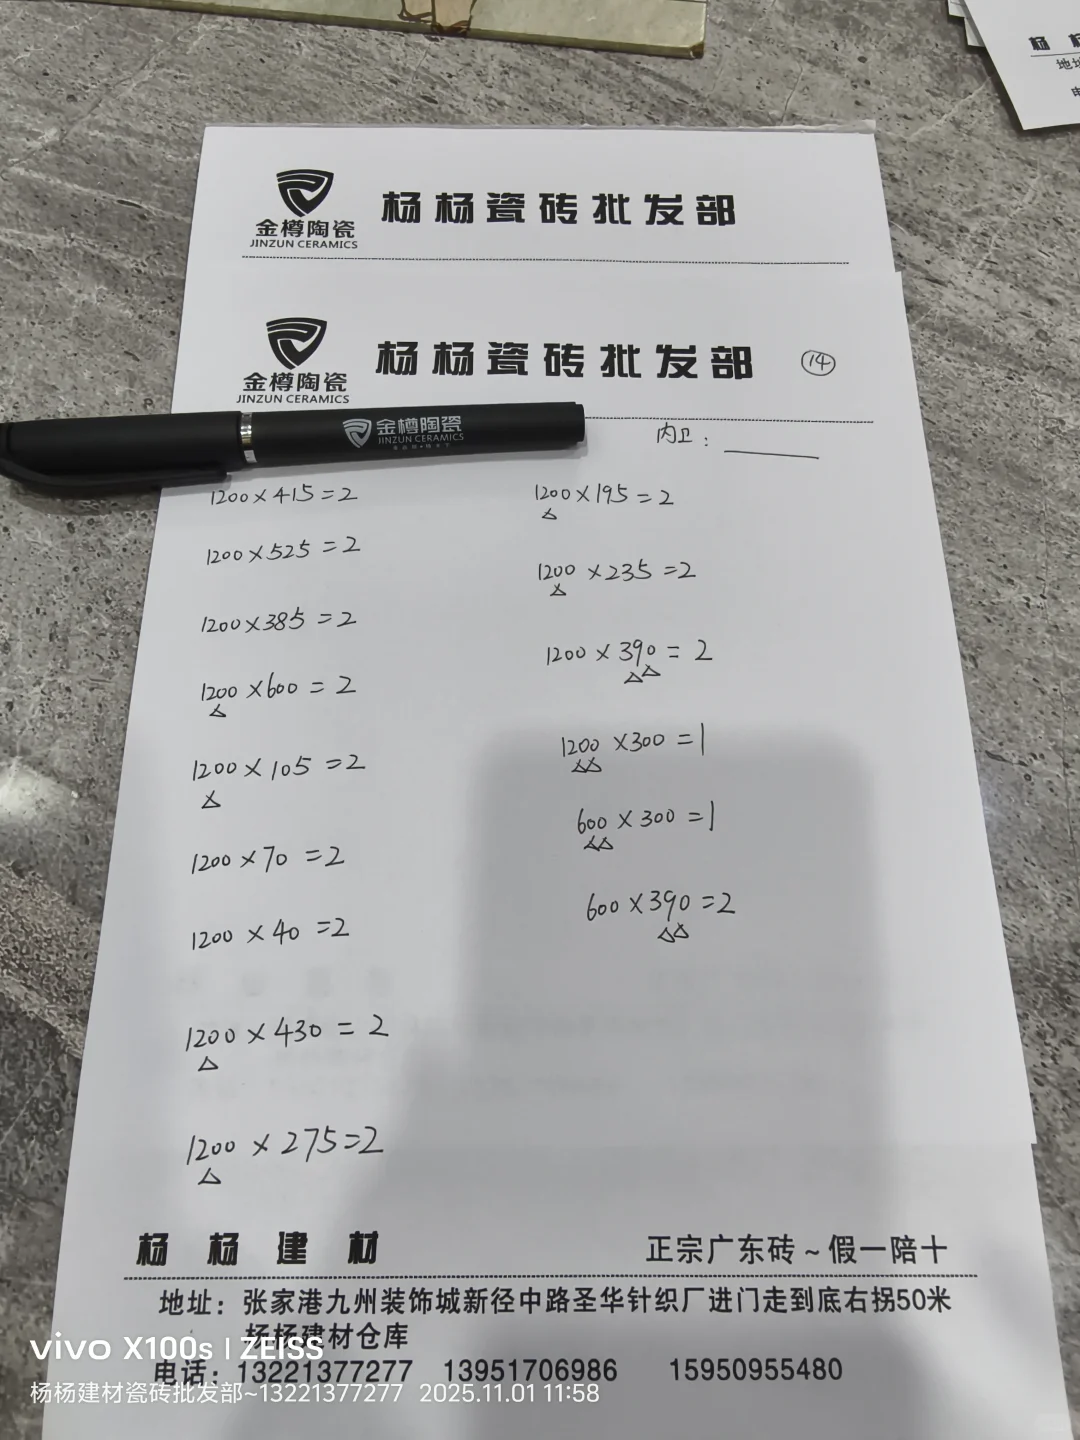 杨
地址
电
金樽陶瓷
JINZUN CERAMICS
杨杨瓷砖批发部
金樽陶瓷
JINZUN CERAMICS
杨杨瓷砖批发部
14
金樽陶瓷
JINZUN CERAMICS
内卫:
1200×415=2
1200×525=2
1200×385=2
1200×600=2
△
1200×105=2
△
1200×70=2
1200×40=2
1200×430=2
△
1200×275=2
△
1200×195=2
△
1200×235=2
△
1200×390=2
△△
1200×300=1
△△
600×300=1
△△
600×390=2
△△
杨杨建材
正宗广东砖~假一陪十
地址:张家港九州装饰城新径中路圣华针织厂进门走到底右拐50米
杨杨建材仓库
电话:13221377277 13951706986 15950955480
vivo X100s | ZEISS
杨杨建材瓷砖批发部~13221377277 2025.11.01 11:58